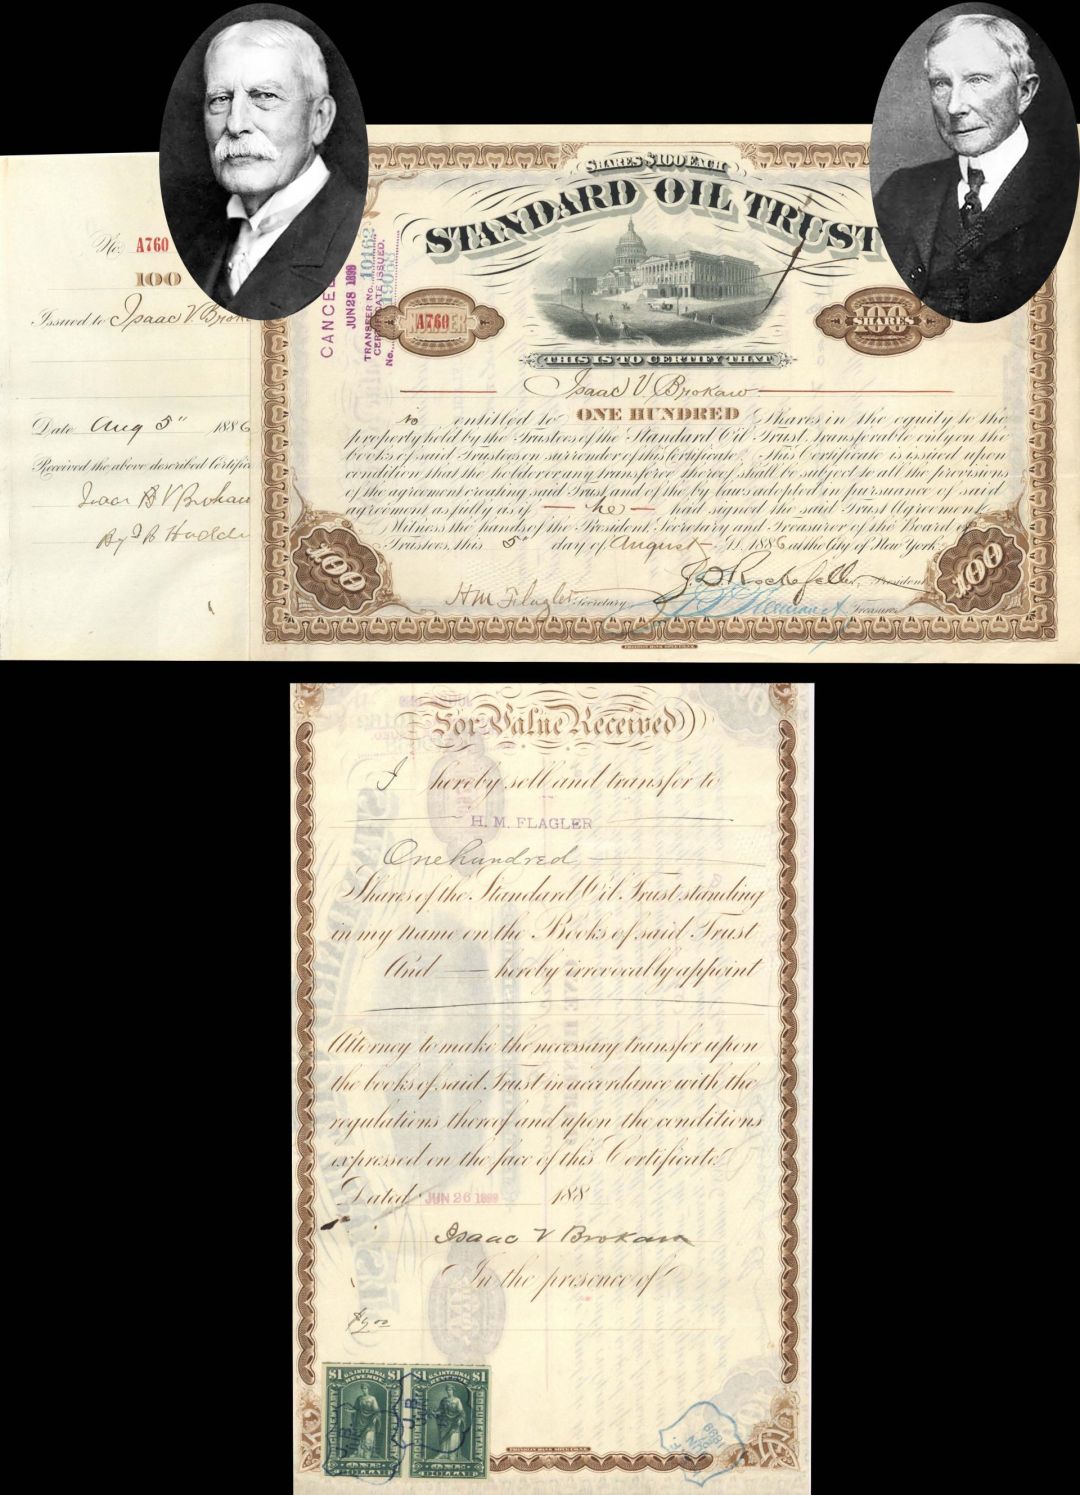 No. A760
100
Issued to Isaac V. Broka
Date Aug 5" 1886
Received the above described Certific
Isaac V Brokaw
SHARES $100 EACH
STANDARD OIL TRUST
CANCE
JUN 28 1899
TRANSFER No. 10162
CERTIFICATE ISSUED.
No.
A760
100
SHARES
THIS IS TO CERTIFY THAT
Isaac V Brokaw
is entitled to ONE HUNDRED Shares in the equity to the
property held by the Trustees of the Standard Oil Trust, transferable only on the
books of said Trustees on surrender of this Certificate. This Certificate is issued upon
condition that the holder or any transferee thereof shall be subject to all the provisions
of the agreement creating said Trust and of the by-laws adopted in pursuance of said
agreement as fully as if — he — had signed the said Trust Agreement.
Witness the hands of the President, Secretary and Treasurer of the Board of
Trustees, this 5" day of August A.D. 1886 at the City of New York.
100
100
J D Rockefeller President
H M Flagler Secretary
Treasurer
FRANKLIN BANK NOTE CO. N.Y.
For Value Received
I hereby sell and transfer to
H. M. FLAGLER
One hundred
Shares of the Standard Oil Trust standing
in my name on the Books of said Trust
And — hereby irrevocably appoint
Attorney to make the necessary transfer upon
the books of said Trust in accordance with the
regulations thereof and upon the conditions
expressed on the face of this Certificate
Dated JUN 26 1899 188
Isaac V Brokaw
In the presence of
$1 U.S. INTERNAL REVENUE $1
DOCUMENTARY
DOCUMENTARY
ONE DOLLAR
$1 U.S. INTERNAL REVENUE $1
DOCUMENTARY
DOCUMENTARY
ONE DOLLAR
1899
FRANKLIN BANK NOTE CO. N.Y.